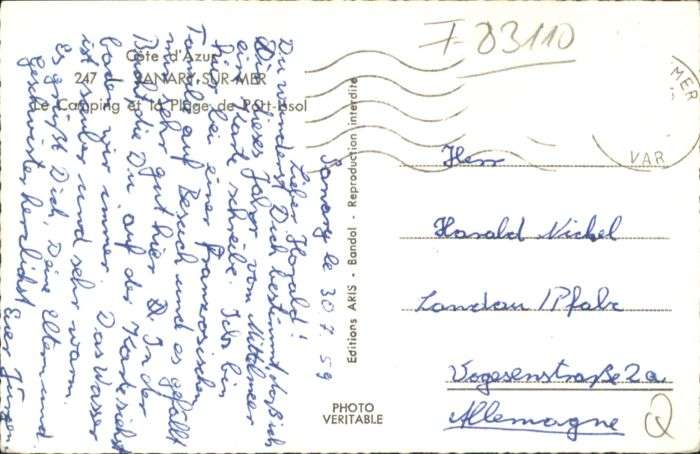 Côte d'Azur
247 - SANARY-SUR-MER
Le Camping et la Plage de Port-Issol
Sanary le 30.7.59
Lieber Harald!
Du wunderst Dich bestimmt, daß ich
Dir dieses Jahr vom Mittelmeer
eine Karte schreibe. Ich bin
hier bei einer französischen
Familie auf Besuch und es gefällt
mir sehr gut hier. In der
Bucht, die Du auf der Karte siehst
baden wir immer. Das Wasser
ist sauber und sehr warm.
Es grüßt Dich, Deine Eltern und
Geschwister herzlichst Euer Jürgen
Editions ARIS - Bandol - Reproduction interdite
PHOTO
VERITABLE
F 83110
MER
VAR
Herr
Harald Nickel
Landau / Pfalz
Vogesenstraße 2a
Allemagne
Q